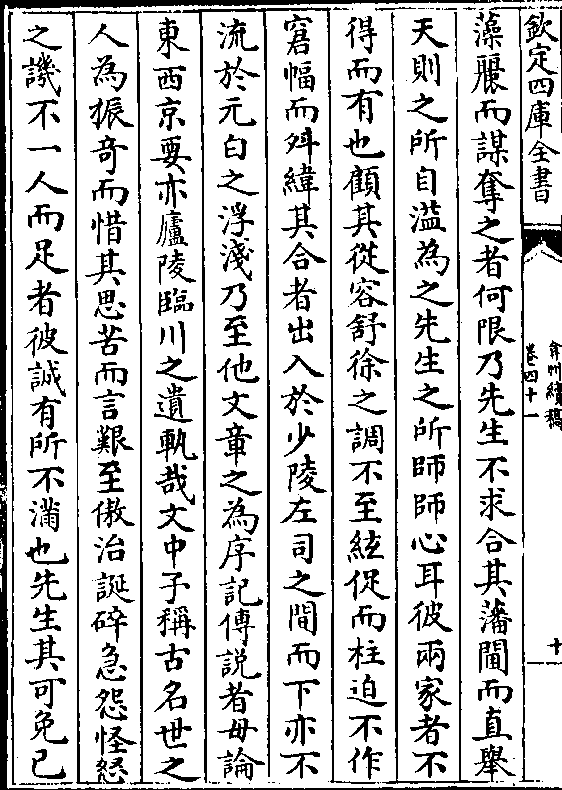 欽定四庫全書
弇州續稿
卷四十一
十
藻麗而謀奪之者何限乃先生不求合其藩閫而直舉
天則之所自溢為之先生之所師師心耳彼兩家者不
得而有也顧其從容舒徐之調不至絃促而柱迫不作
窘幅而舛緯其合者出入於少陵左司之間而下亦不
流於元白之浮淺乃至他文章之為序記傳說者毋論
東西京要亦廬陵臨川之遺軌哉文中子稱古名世之
人為振奇而惜其思苦而言艱至傲治誕碎急怨怪怒
之譏不一人而足者彼誠有所不滿也先生其可免已